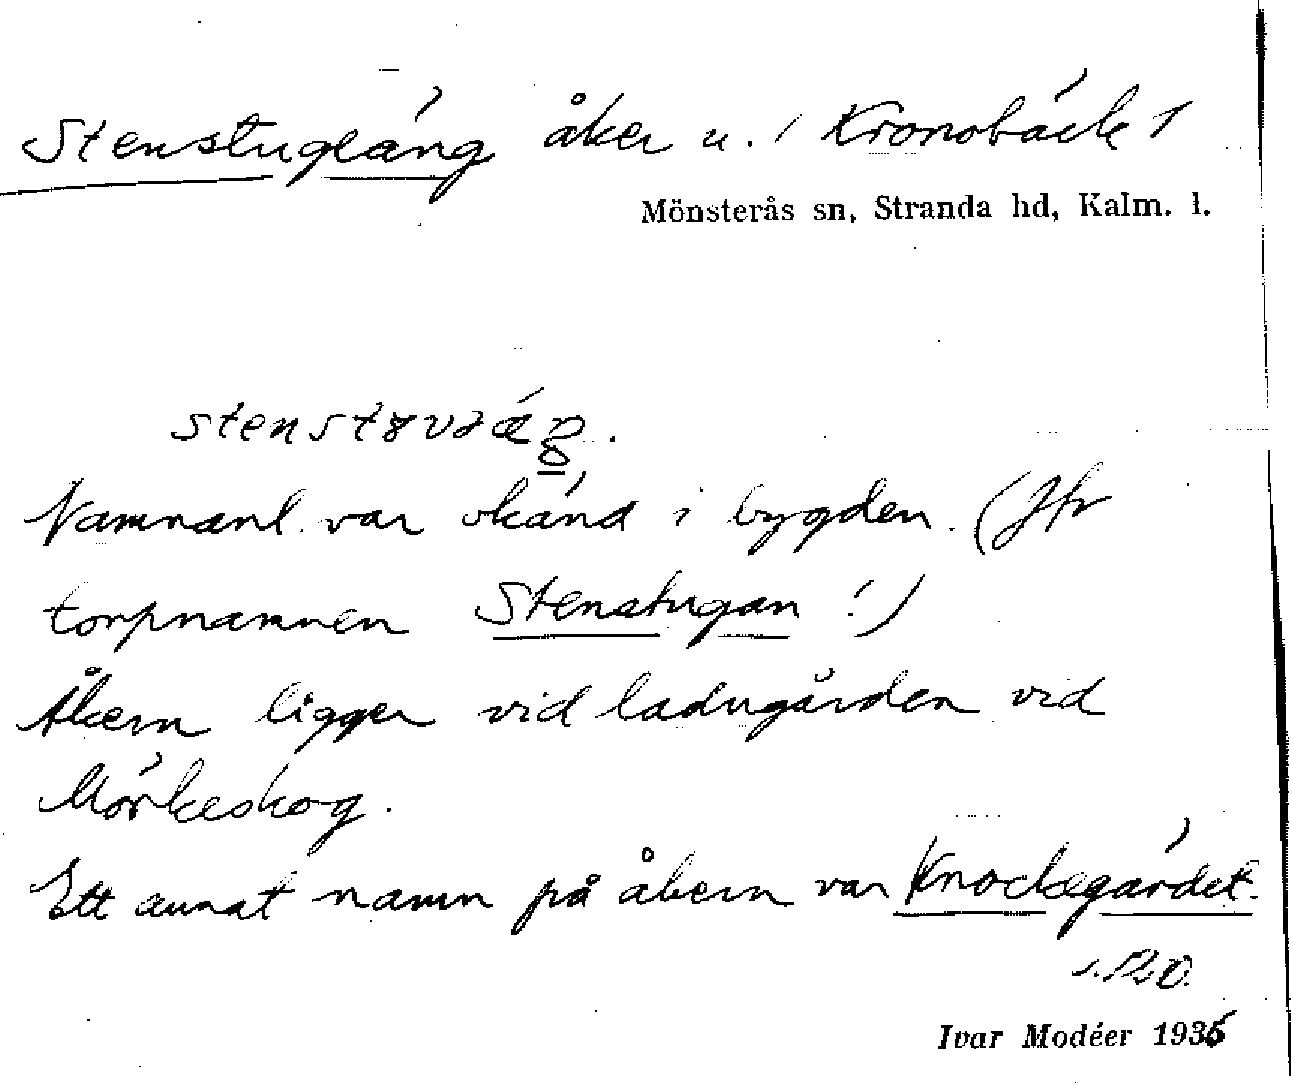 Stenstugeäng åker u. / Kronobäck 1
Mönsterås sn, Stranda hd, Kalm. l.
Namnanl. var okänd i bygden. (Jfr
torpnamnen Stenstugan!)
Åkern ligger vid ladugården vid
Mörkeskog.
Ett annat namn på åkern var Knockegärdet.
s. 120.
Ivar Modéer 1936